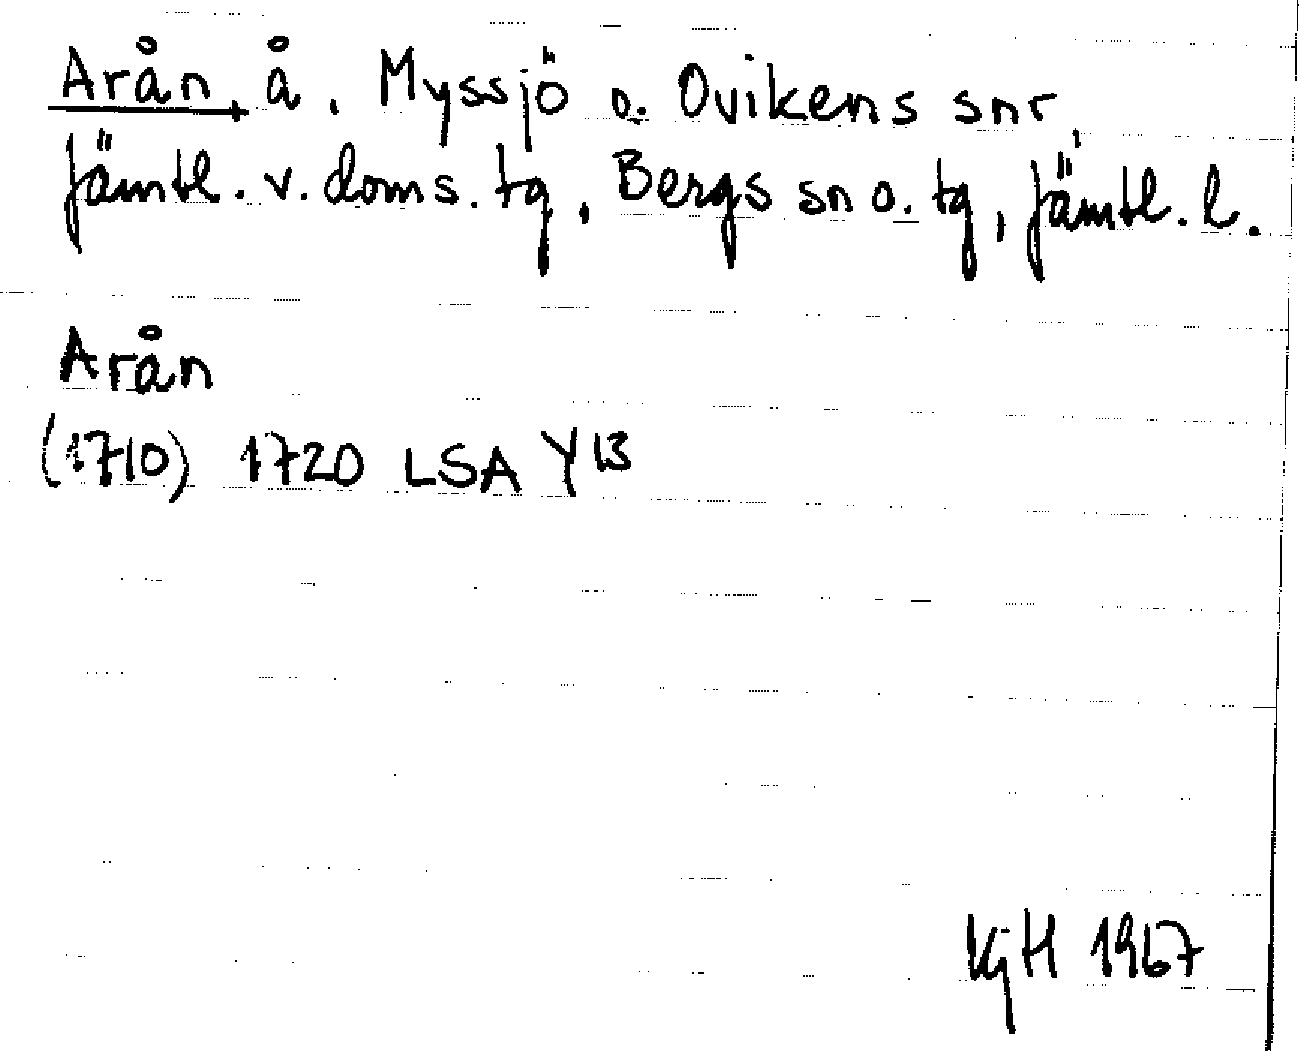 Arån, å, Myssjö o. Ovikens snr,
Jämtl. v. doms. tg, Bergs sn o. tg, Jämtl. l.
Arån
(1710) 1720 LSA Y 13
KjH 1967